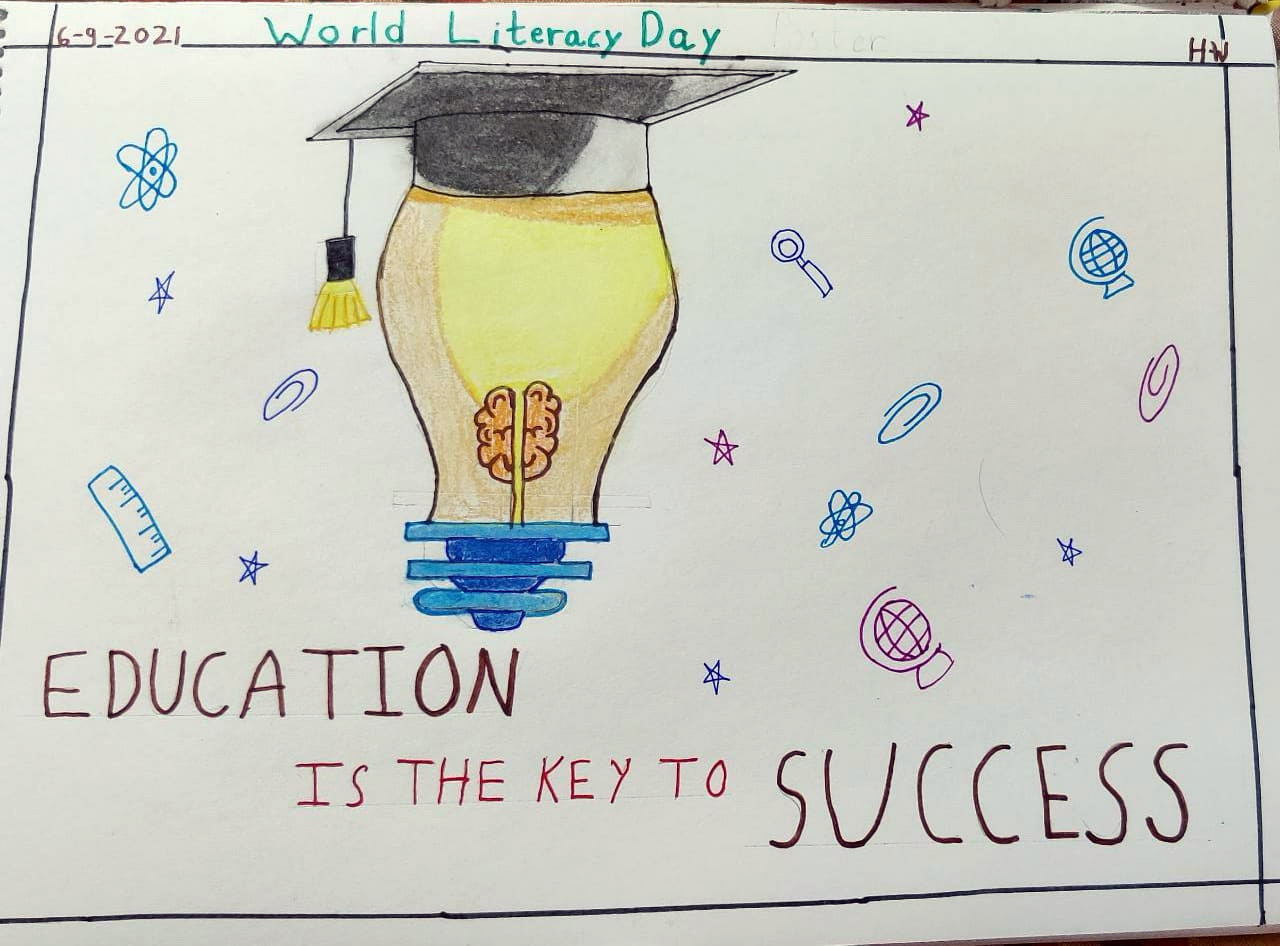 6-9-2021 World Literacy Day Poster HW
EDUCATION
IS THE KEY TO SUCCESS